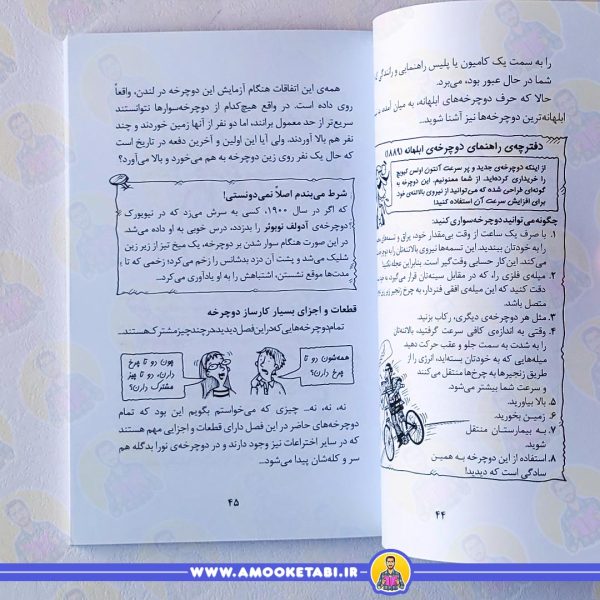 را به سمت یک کامیون یا پلیس راهنمایی و رانندگی که
شما در حال عبور بود، می‌برد.
حالا که حرف دوچرخه‌های ابلهانه، به میان آمده
ابلهانه‌ترین دوچرخه‌ها نیز آشنا شوید...
دفترچه‌ی راهنمای دوچرخه‌ی ابلهانه (۱۸۸۹)
از اینکه دوچرخه‌ی جدید و پر سرعت آنتون اولس
را خریداری کرده‌اید، از شما ممنونیم. این دوچرخه به
گونه‌ای طراحی شده که می‌توانید از نیروی بالاتنه‌ی خود
برای افزایش سرعت آن استفاده کنید!
چگونه می‌توانید دوچرخه‌سواری کنید:
۱. با صرف یک ساعت از وقت بی‌مقدار خود، یراق و تسمه‌های
را به خودتان ببندید. این تسمه‌ها نیروی بالاتنه‌تان را به
می‌کند. این کار حسابی وقت‌گیر است. بنابراین عجله نکنید!
۲. میله‌ی فلزی را، که در مقابل سینه‌تان قرار می‌گیرد،
دقت کنید که این میله‌ی افقی فنردار، به چرخ زنجیر زیر
متصل باشد.
۳. مثل هر دوچرخه‌ی دیگری، رکاب بزنید.
۴. وقتی به اندازه‌ی کافی سرعت گرفتید، بالاتنه‌تان
را به شدت به سمت جلو و عقب حرکت دهید
میله‌هایی که به خودتان بسته‌اید، انرژی را از
طریق زنجیرها به چرخ‌ها منتقل می‌کنند
و سرعت شما بیشتر می‌شود.
۵. بالا بیاورید.
۶. زمین بخورید.
۷. به بیمارستان منتقل
شوید.
۸. استفاده از این دوچرخه به همین
سادگی است که دیدید!
۴۴
همه‌ی این اتفاقات هنگام آزمایش این دوچرخه در لندن، واقعاً
روی داده است. در واقع هیچ‌کدام از دوچرخه‌سوارها نتوانستند
سریع‌تر از حد معمول برانند، اما دو نفر از آنها زمین خوردند و چند
نفر هم بالا آوردند. ولی آیا این اولین و آخرین دفعه در تاریخ است
که حال یک نفر روی زین دوچرخه به هم می‌خورد و بالا می‌آورد؟
شرط می‌بندم اصلاً نمی‌دونستی!
که اگر در سال ۱۹۰۰، کسی به سرش می‌زد که در نیویورک
دوچرخه‌ی آدولف نوبوتر را بدزدد، درس خوبی به او داده می‌شد.
در این صورت هنگام سوار شدن بر دوچرخه، یک میخ تیز از زیر زین
شلیک می‌شد و پشت آن دزد بدشانس را زخم می‌کرد؛ زخمی که تا
مدت‌ها موقع نشستن، اشتباهش را به او یادآوری می‌کرد...
قطعات و اجزای بسیار کارساز دوچرخه
تمام دوچرخه‌هایی که در این فصل دیدید در چند چیز مشترک هستند...
همه‌شون دو تا
چرخ دارن؟
چون دو تا چرخ
دارن، دو تا چیز
مشترک دارن؟
نه، نه، نه... چیزی که می‌خواستم بگویم این بود که تمام
دوچرخه‌های حاضر در این فصل دارای قطعات و اجزایی مهم هستند
که در سایر اختراعات نیز وجود دارند و در دوچرخه‌ی نورا بدگله هم
سر و کله‌شان پیدا می‌شود...
۴۵
WWW.AMOOKETABI.IR